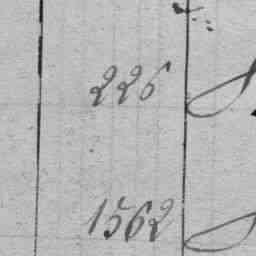 226
1562